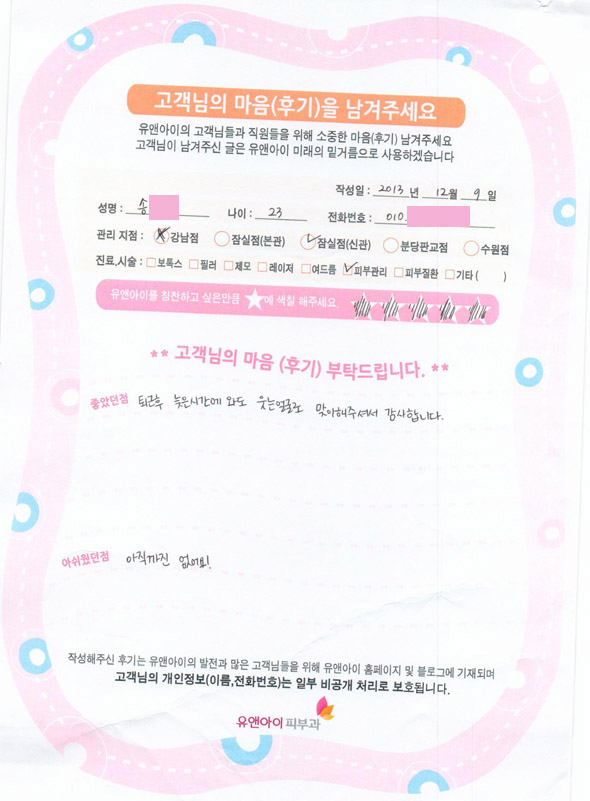 고객님의 마음(후기)을 남겨주세요
유앤아이의 고객님들과 직원들을 위해 소중한 마음(후기) 남겨주세요
고객님이 남겨주신 글은 유앤아이 미래의 밑거름으로 사용하겠습니다
작성일 : 2013 년 12월 9 일
성명 : 송 나이 : 23 전화번호 : 010
관리 지점 : 강남점 잠실점(본관) 잠실점(신관) 분당판교점 수원점
진료,시술 : 보톡스 필러 제모 레이저 여드름 피부관리 피부질환 기타 ( )
유앤아이를 칭찬하고 싶은만큼 ★에 색칠 해주세요.
** 고객님의 마음 (후기) 부탁드립니다. **
좋았던점 퇴근후 늦은시간에 와도 웃는얼굴로 맞이해주셔서 감사합니다.
아쉬웠던점 아직까진 없어요!
작성해주신 후기는 유앤아이의 발전과 많은 고객님들을 위해 유앤아이 홈페이지 및 블로그에 기재되며
고객님의 개인정보(이름,전화번호)는 일부 비공개 처리로 보호됩니다.
유앤아이 피부과